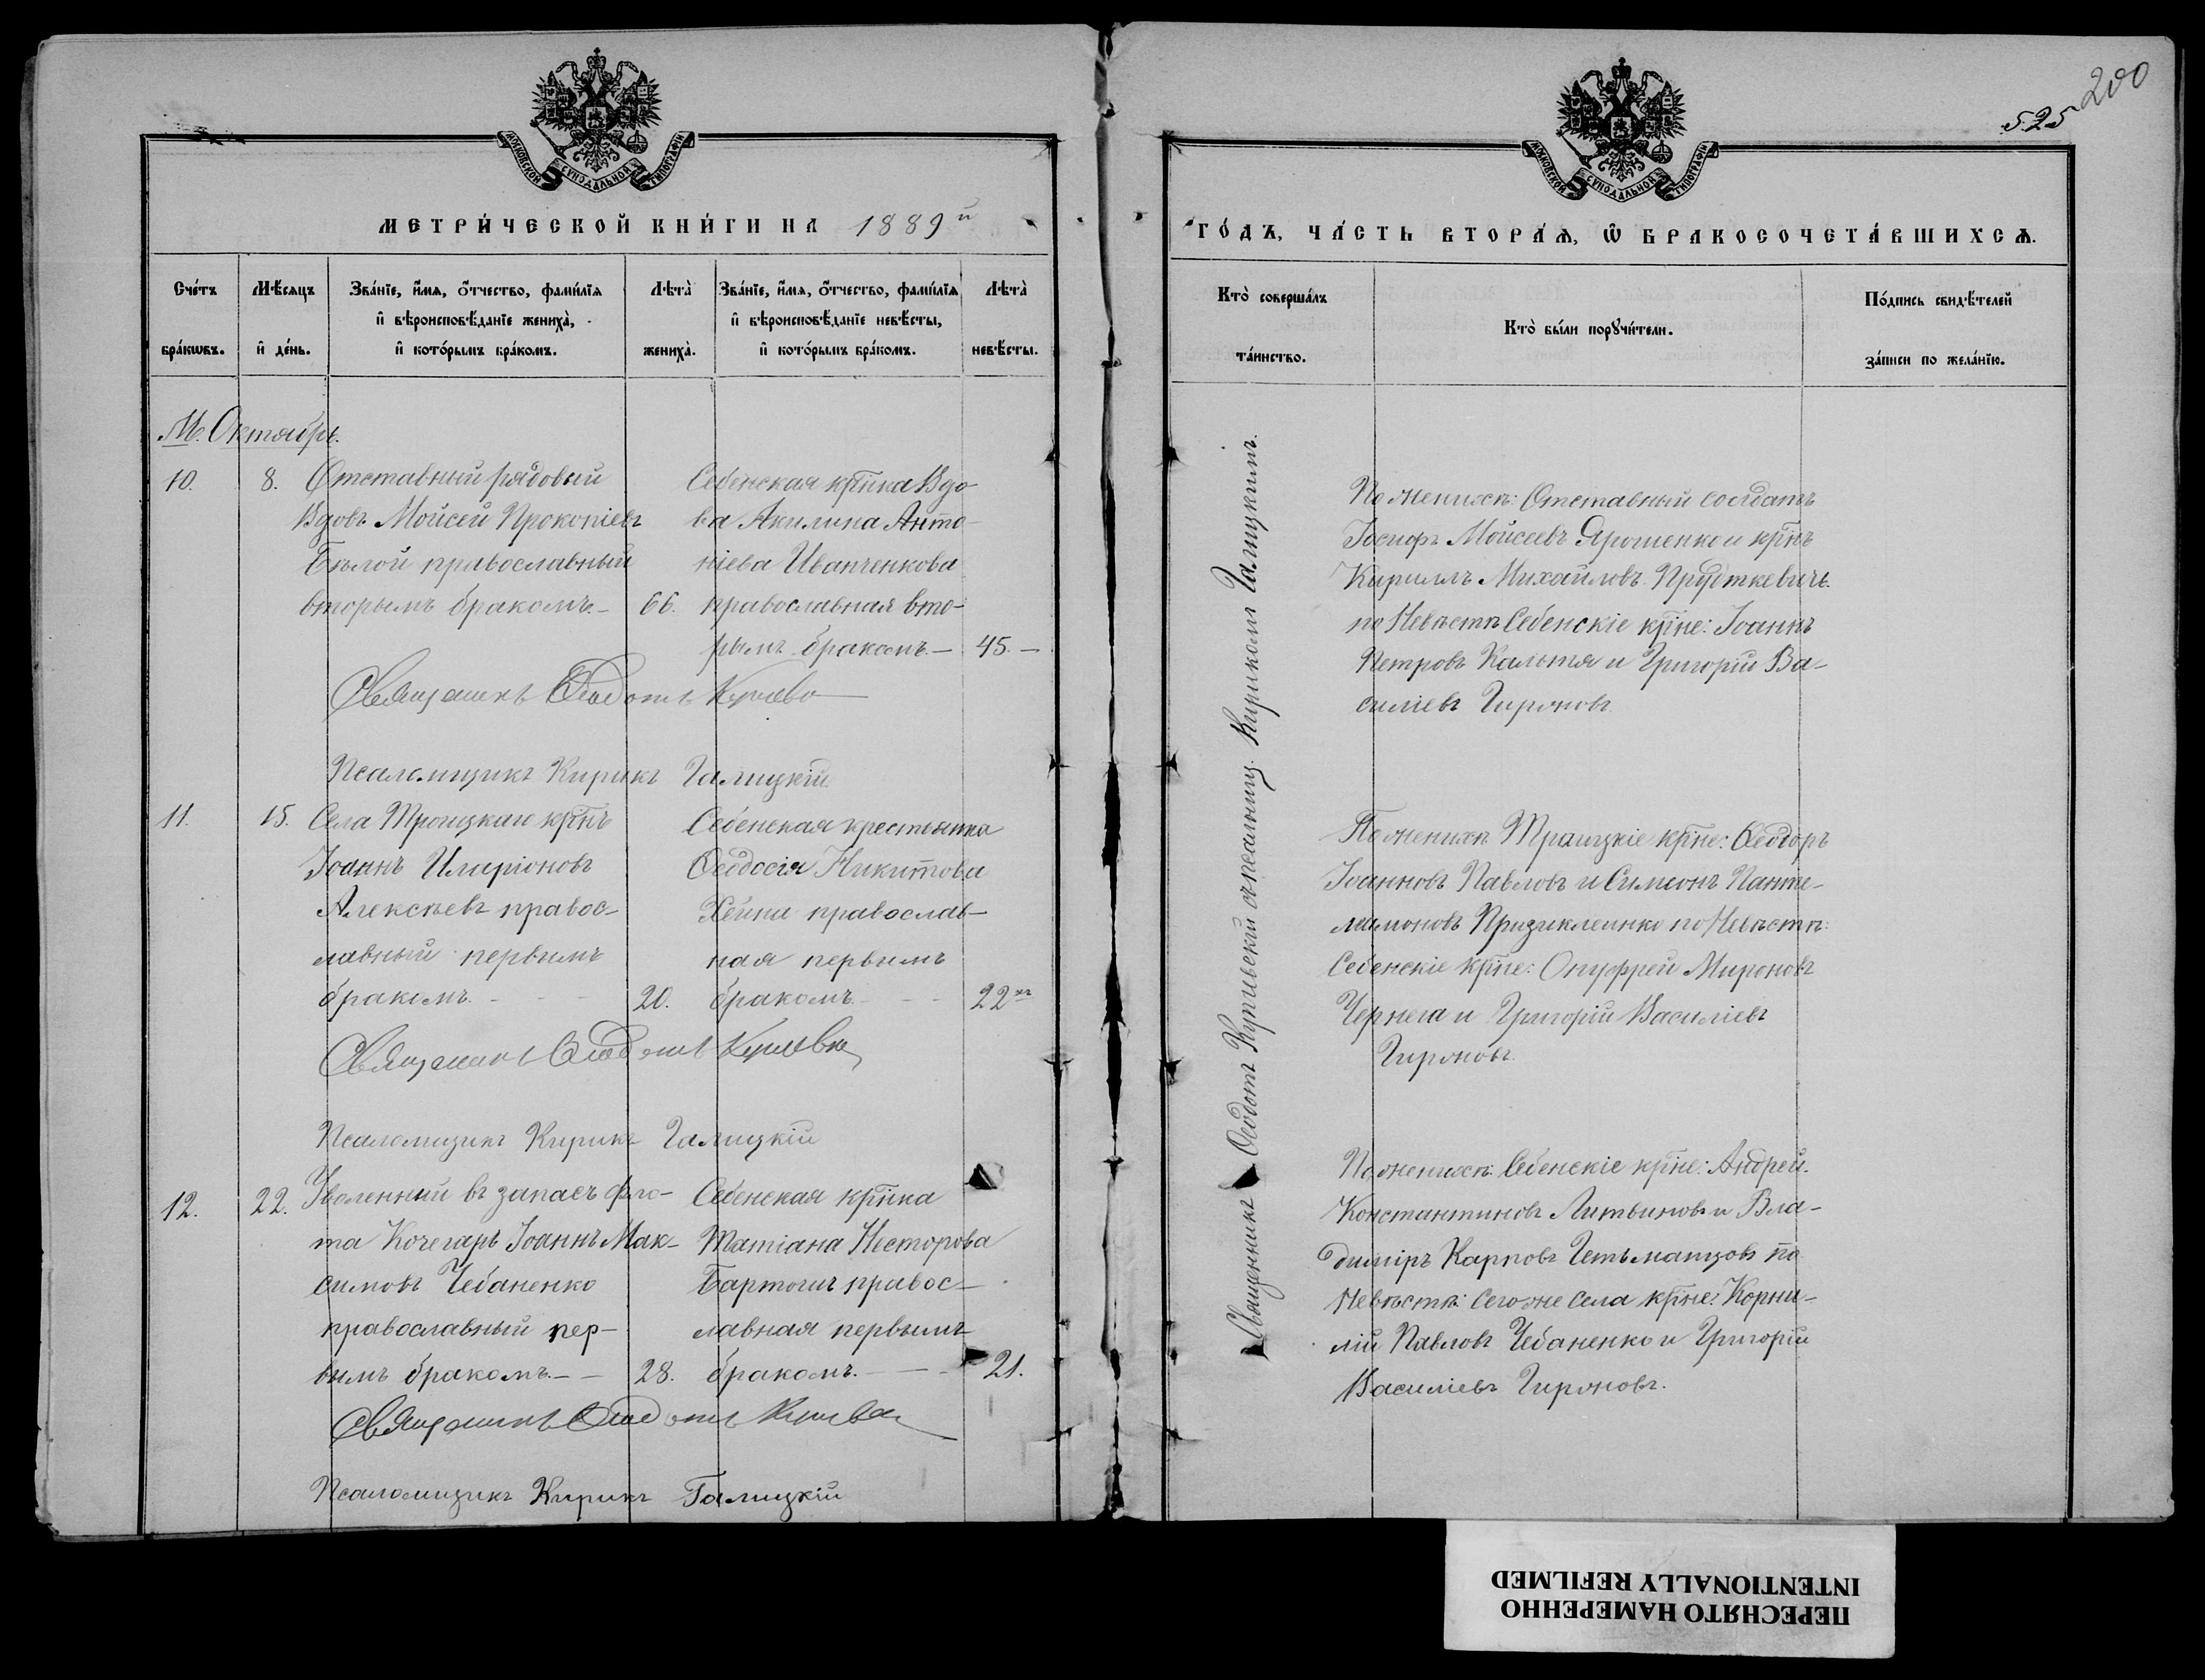 МОСКОВСКОЙ СѴНОДАЛЬНОЙ ТИПОГРАФІИ
МЕТРИ́ЧЕСКОЙ КНИ́ГИ НА 1889й
Сче́тъ бра́кѡвъ.
Мѣ́сяцъ и҆ де́нь.
Зва́нїе, и҆́мя, ѻ҆́тчество, фами́лїя
и҆ вѣроисповѣ́данїе жениха̀,
и҆ кото́рымъ бра́комъ.
Лѣта̀ жениха̀.
Зва́нїе, и҆́мя, ѻ҆́тчество, фами́лїя
и҆ вѣроисповѣ́данїе невѣ́сты,
и҆ кото́рымъ бра́комъ.
Лѣта̀ невѣ́сты.
М. Октябрь.
10. 8. Отставный рядовый
Вдовъ Мойсей Прокопіевъ
Бѣлой православный
вторымъ бракомъ.- 66.
Себенская крн̃ка Вдо-
ва Акилина Анто-
ніева Иванченкова
православная вто-
рымъ бракомъ.- 45.-
Священникъ Ѳеодотъ
Псаломщикъ Кирикъ Галицкій
11. 15. Села Троицкаго крн̃ъ
Іоаннъ Иларіоновъ
Алексѣевъ правос-
лавный первымъ
бракомъ.- 20.
Себенская крестьянка
Ѳеодосія Никитова
православ-
ная первымъ
бракомъ 22хъ
Священникъ Ѳеодотъ
Псаломщикъ Кирикъ Галицкій
12. 22. Уволенный въ запасъ фло-
та Кочегаръ Іоаннъ Мак-
симовъ Чебаненко
православный пер-
вымъ бракомъ.- - 28.
Себенская крн̃ка
Татіана Несторова
правос-
лавная первымъ
бракомъ.- 21.
Священникъ Ѳеодотъ
Псаломщикъ Кирикъ Галицкій
200
525
МОСКОВСКОЙ СѴНОДАЛЬНОЙ ТИПОГРАФІИ
ГО́ДЪ, ЧА́СТЬ ВТОРА́Ѧ, Ѽ БРАКОСОЧЕТА́ВШИХСѦ.
Кто̀ соверша́лъ
та́инство.
Кто̀ бы́ли порꙋчи́тели.
По́дпись свидѣ́телей
за́писи по жела́нїю.
Священникъ Ѳеодотъ съ псаломщ. Кирикомъ Галицкимъ.
По женихѣ: Отставный солдатъ
Іосифъ Мойсеевъ Ярошенко и крн̃ъ
Кирилъ Михайловъ Прудткевичъ.
по Невѣстѣ Себенскіе крн̃е: Іоаннъ
Петровъ и Григорій Ва-
силіевъ Гиржовъ
По женихѣ Троицкіе крн̃е: Ѳеодоръ
Іоанновъ Павловъ и Симеонъ Панте-
леимоновъ по Невѣстѣ:
Себенскіе крн̃е: Онуфрей Мироновъ
Чернега и Григорій Василіевъ
Гиржовъ.
По женихѣ: Себенскіе крн̃е: Андрей
Константиновъ Литвиновъ и Вла-
диміръ Карповъ Гетьманцовъ по
Невѣстѣ: Сегоже села крн̃е: Корни-
лій Павловъ Чебаненко и Григорій
Василіевъ Гиржовъ.
ПЕРЕСНЯТО НАМЕРЕННО
INTENTIONALLY REFILMED